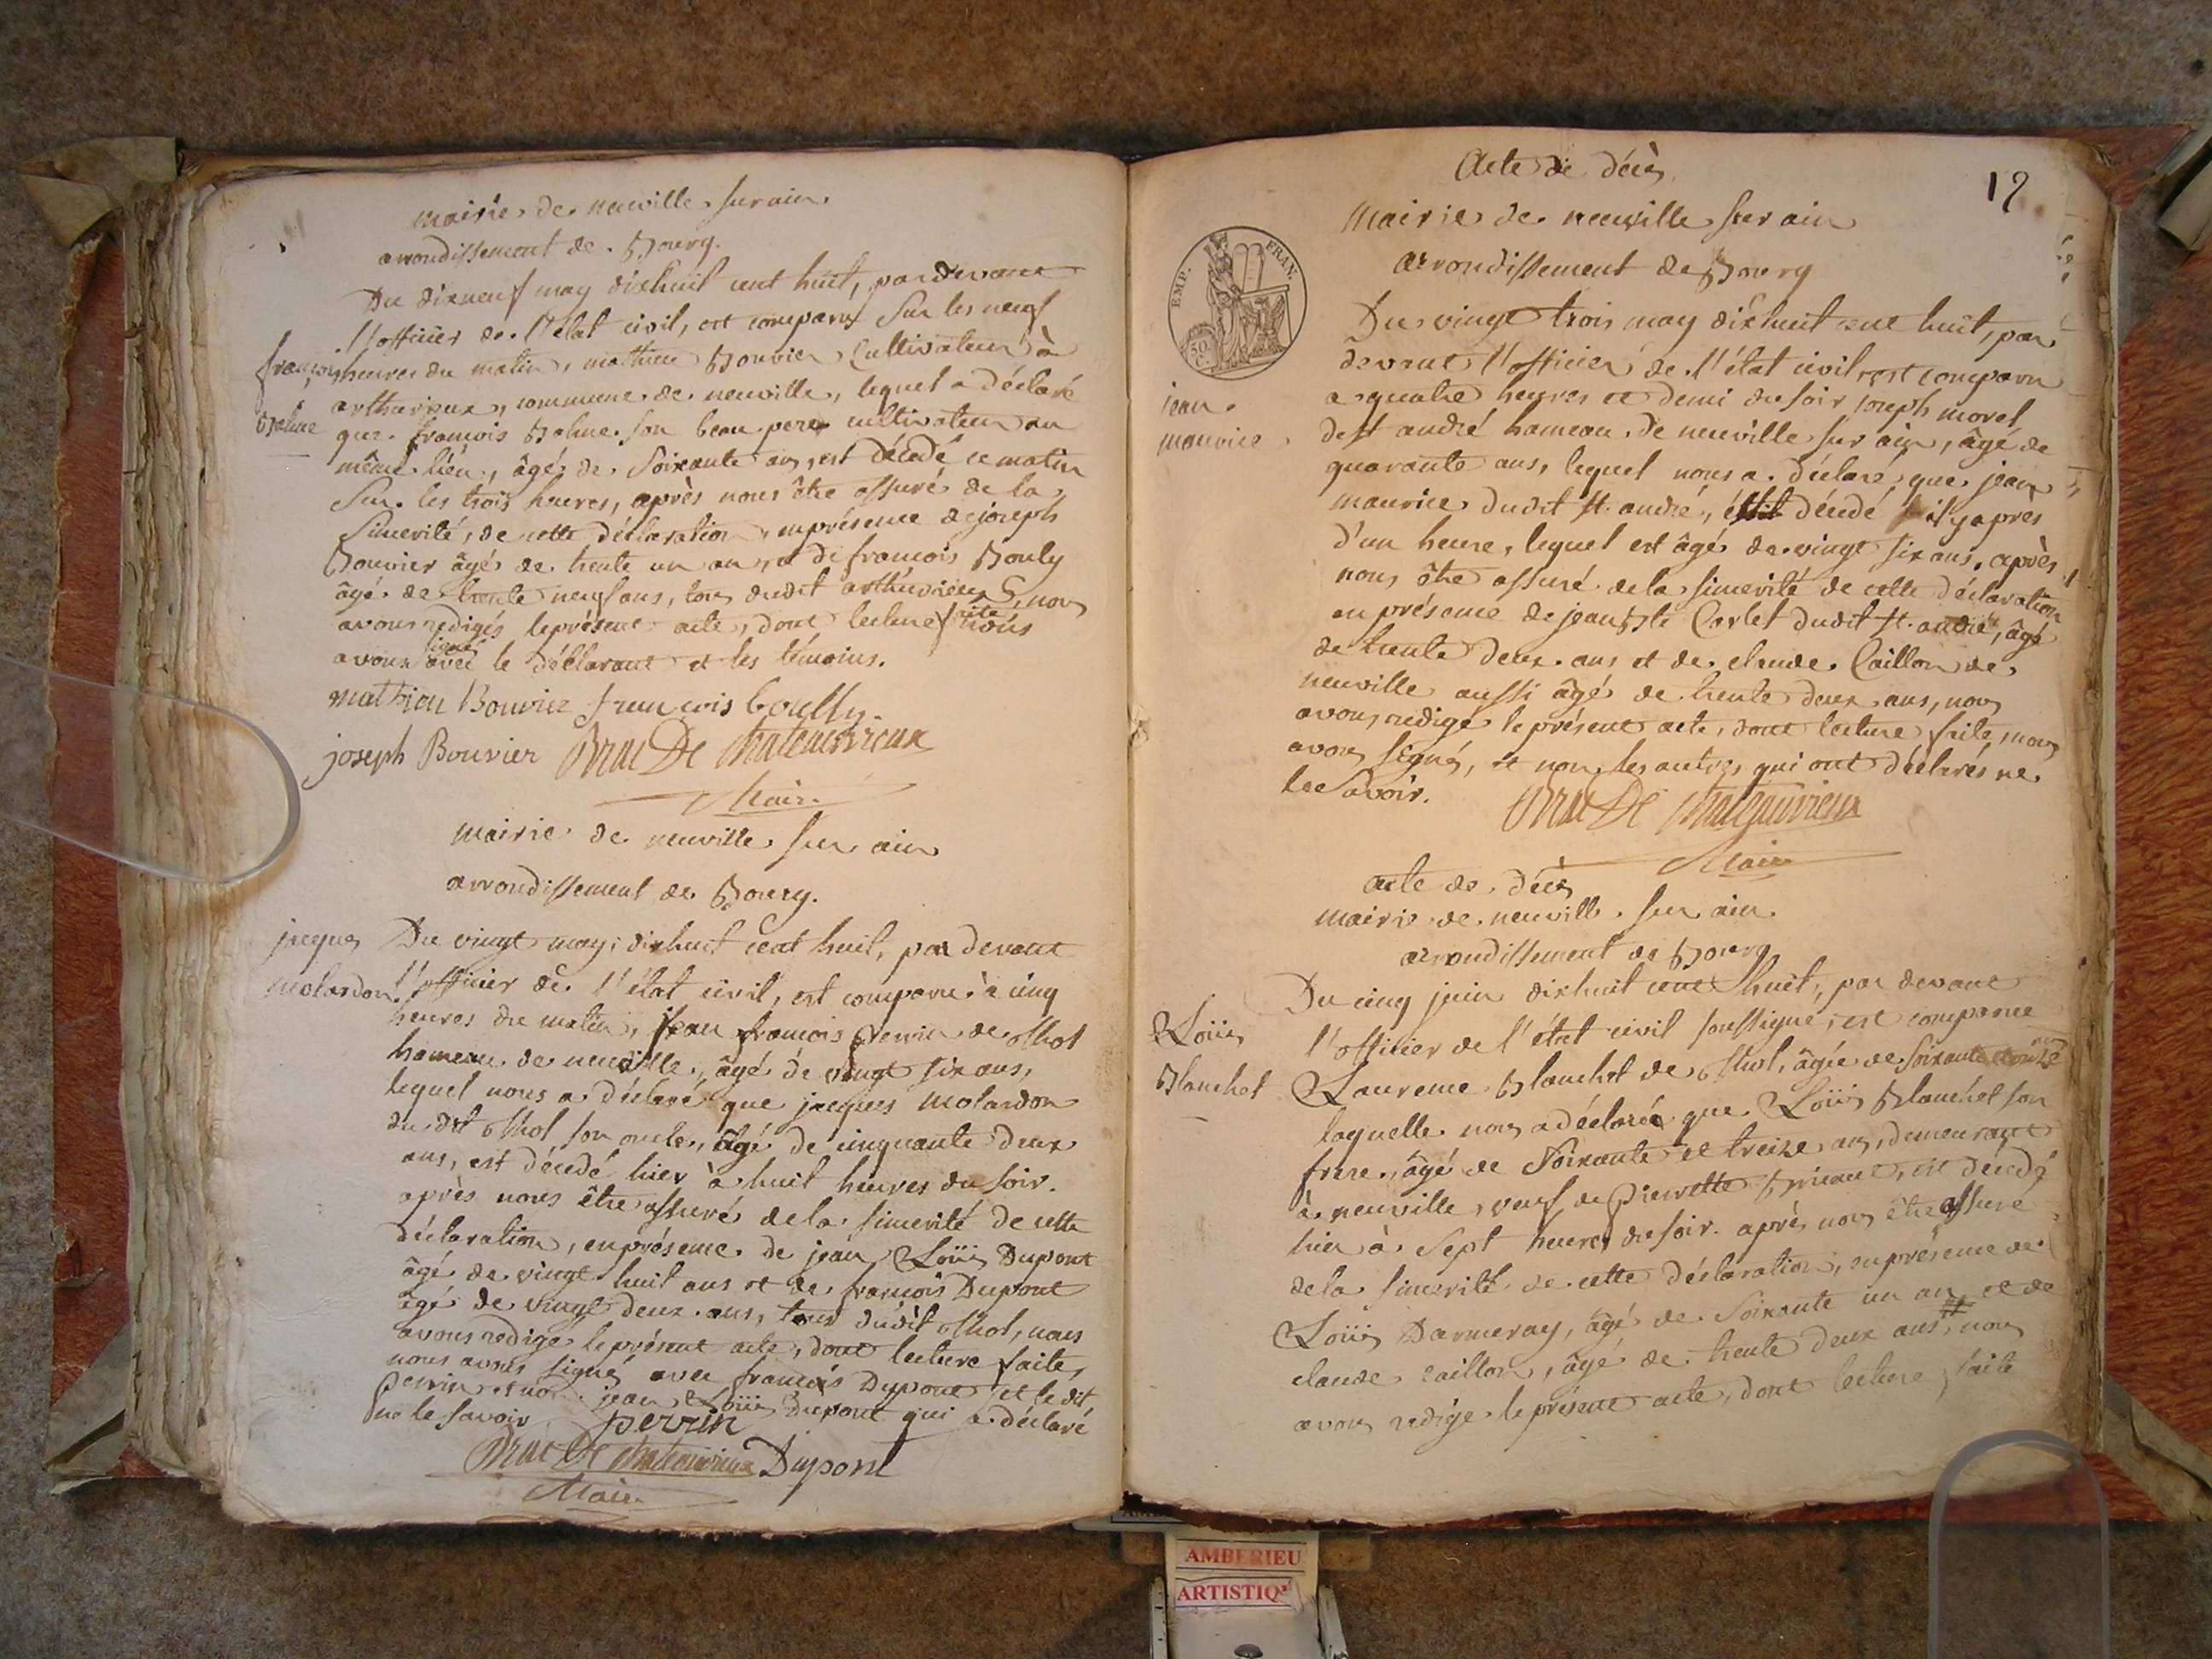 mairie de neuville sur ain
arrondissement de Bourg.
Du dixneuf may dixhuit cent huit, par devant
l'officier de l'état civil, est comparu sur les neuf
françois heures du matin, mathieu Bouvier Cultivateur à
arthurieux, commune de neuville, lequel a déclaré
que françois son beau pere cultivateur au
même lieu, âgé de soixante ans, est décédé ce matin
sur les trois heures, après nous être assuré de la
sincerité de cette déclaration, en présence de joseph
Bouvier âgé de trente un ans, et de françois Bouly
âgé de trente neuf ans, tous dudit arthurieux, nous
avons redigés le présent acte, dont lecture faite nous
avons signé avec le déclarant et les témoins.
mathieu Bouvier francois boully
joseph Bouvier Brac De Chateauvieux
Maire
mairie de neuville sur ain
arrondissement de Bourg.
jacques
molardon
Du vingt may dixhuit cent huit, par devant
l'officier de l'état civil, est comparu à cinq
heures du matin, jean françois Perrin de Thol
hameau de neuville, âgé de vingt six ans,
lequel nous a déclaré que jacques molardon
du dit Thol son oncle, âgé de cinquante deux
ans, est décédé hier à huit heures du soir.
après nous être assuré de la sincerité de cette
déclaration, en présence de jean Loüis Dupont
âgé de vingt huit ans et de françois Dupont
âgé de vingt deux ans, tous dudit Thol, nous
avons redigé le présent acte, dont lecture faite,
nous avons signé avec françois Dupont et le dit
Perrin et non jean Loüis Dupont qui a déclaré
ne le savoir perrin
Brac De Chateauvieux Dupont
Maire
Acte de décès
19
mairie de neuville sur ain
arrondissement de Bourg
EMP. FRAN.
50 C.
jean
maurice
Du vingt trois may dixhuit cent huit, par
devant l'officier de l'état civil est comparu
a quatre heures et demi du soir joseph morel
de st andré hameau de neuville sur ain, âgé de
quarante ans, lequel nous a déclaré que jean
maurice dudit st. andré, est décédé il y a près
d'un heure, lequel est âgé de vingt six ans, après
nous être assuré de la sincerité de cette déclaration
en présence de jean Bte Carlet dudit st. andré, âgé
de trente deux ans et de claude Caillon de
neuville aussi âgé de trente deux ans, nous
avons redigé le présent acte, dont lecture faite, nous
avons signé, et non les autres qui ont déclarés ne
le savoir. Brac De Chateauvieux
Maire
acte de décès
mairie de neuville sur ain
arrondissement de Bourg
Loüis
Blanchet
Du cinq juin dixhuit cent huit, par devant
l'officier de l'état civil soussigné, est comparue
Laurence Blanchet de Thol, âgée de soixante
laquelle nous a déclaré que Loüis Blanchet son
frere, âgé de soixante et treize ans, demeurant
à neuville, veuf de Pierrette, est décédé
hier à sept heures du soir. après nous être assuré
de la sincerité de cette déclaration, en présence de
Loüis Darmeray, âgé de soixante un an, et de
claude caillon, âgé de trente deux ans, nous
avons redigé le présent acte, dont lecture faite
AMBERIEU
ARTISTIQ